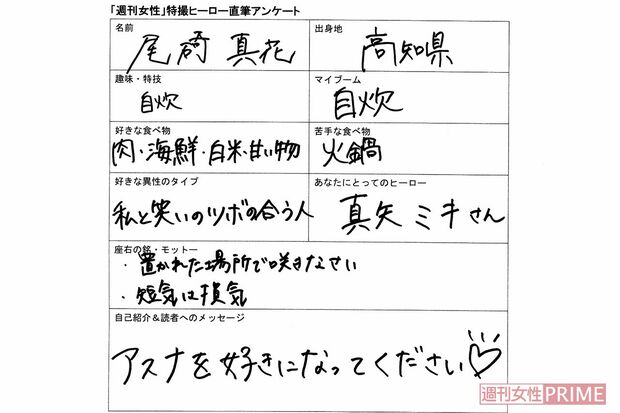 「週刊女性」特撮ヒーロー直筆アンケート
名前
尾碕 真花
出身地
高知県
趣味・特技
自炊
マイブーム
自炊
好きな食べ物
肉・海鮮・白米・甘い物
苦手な食べ物
火鍋
好きな異性のタイプ
私と笑いのツボの合う人
あなたにとってのヒーロー
真矢ミキさん
座右の銘・モットー
・置かれた場所で咲きなさい
・短気は損気
自己紹介&読者へのメッセージ
アスナを好きになってください♡
週刊女性PRIME